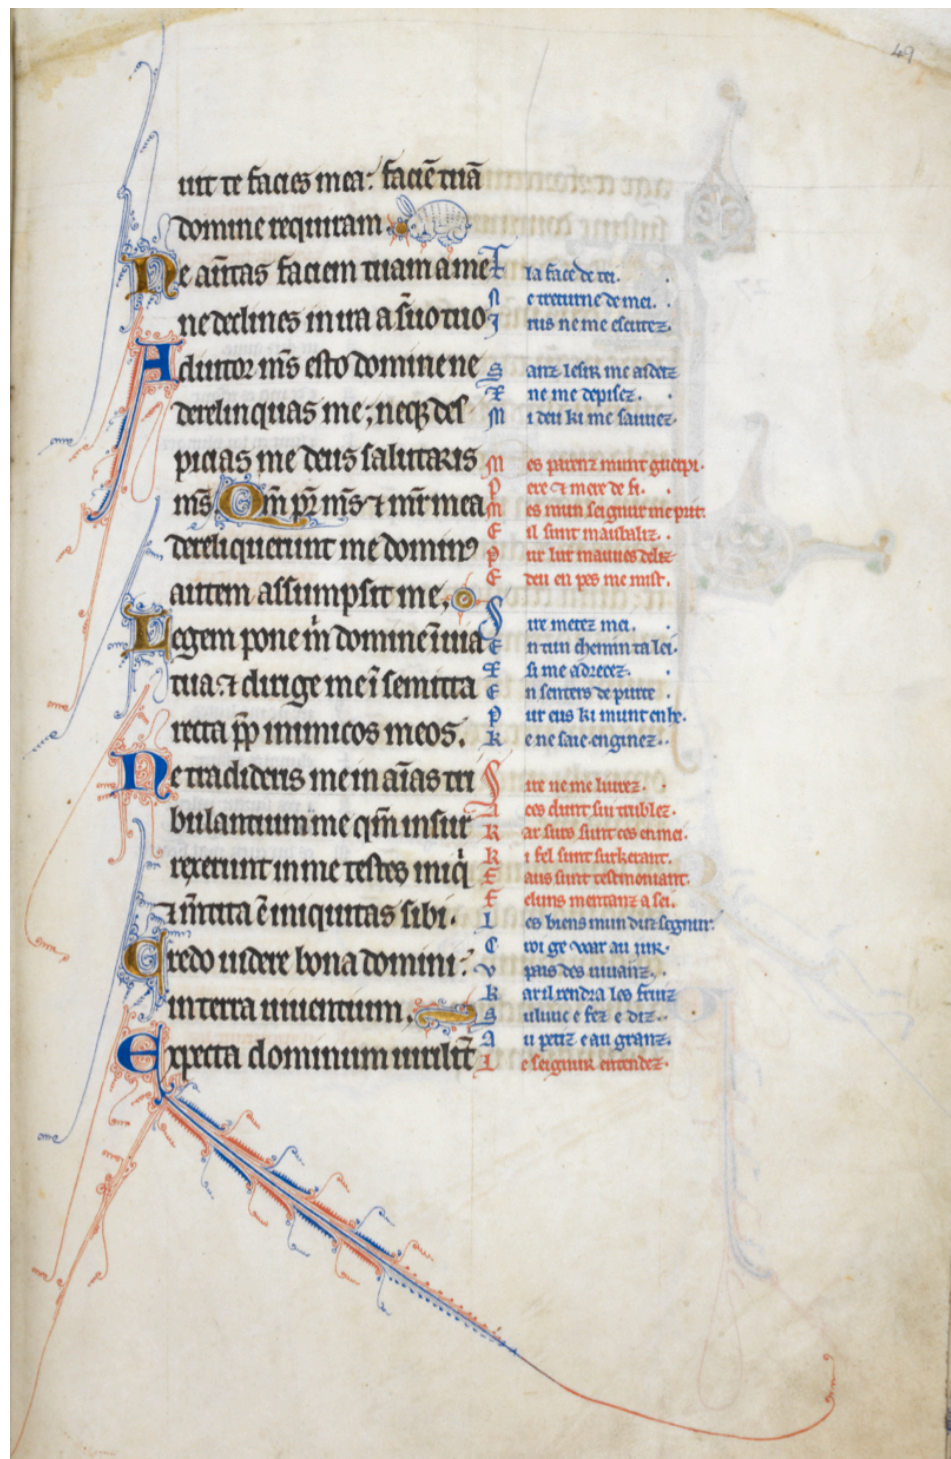 49
uit te facies mea: faciē tuā
domine requiram
Ne auꝰtas faciem tuam a me
ne declines in ira a ẜuo tuo
Adiutor mꝰs esto domine ne
derelinquas me; neqꝫ des
picias me deus salutaris
mꝰs. Qm̄ pr̄ mꝰs ⁊ mr̄ mea
dereliquerunt me dominꝰ
autem assumpsit me,
Legem pone m̄ domine ī uia
tua: ⁊ dirige me ī semitta
recta ꝓp̄ inimicos meos.
Ne tradideris me in aīas tri
bulantium me qm̄ insur
rexerunt in me testes iniqͥ
⁊ m̄tita ē iniquitas sibi.
Credo uidere bona domini:
in terra uiuentium,
Expecta dominum uirilit̄
la face de tei.
N e treturne de mei.
I rus ne me
S anz lessir me aidetz
E ne me depisez.
M i deu ki me sauuez.
M es parenz munt guerpi.
P ere ⁊ mere de fi.
M es mun seignur me prit.
E il sunt
P ur lur mauues deliz
E deu en pes me mist.
S ire metez mei.
E n tun chemin ta lei.
E si me adrecez.
E n senters de purte
P ur eus ki munt en he.
K e ne saie enginez.
S ire ne me liurez.
A ces dunt sui trublez.
K ar surs sunt ces enmei.
K i fel sunt surkerant.
F aus sunt testmoniant.
E eluns mentanz a sei.
L es biens mun duz segnur.
C roi ge voer au iur.
V pais des uiuanz.
K ar il rendra les fruiz
S uluuc e fez e diz.
A u petiz e au granz.
L e seignur entendez.